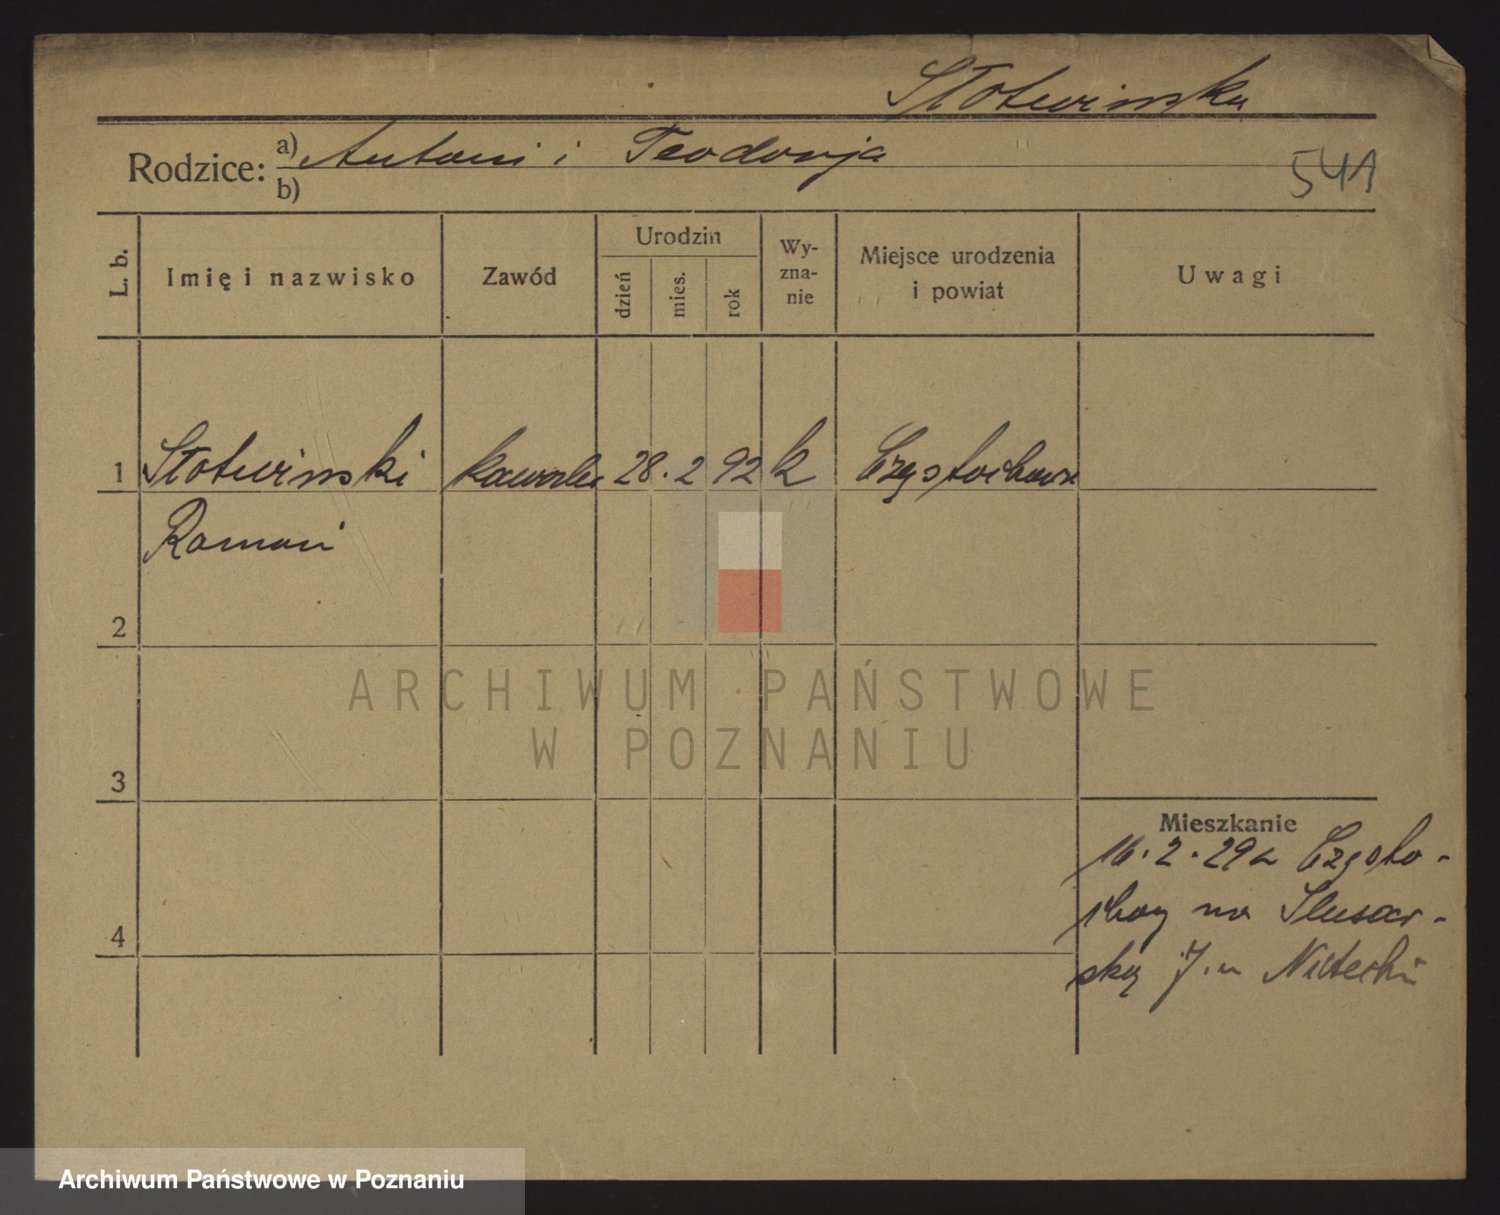 Słotwinska
Rodzice: a) Antoni i Teodorja
b)
541
L. b.
Imię i nazwisko
Zawód
Urodzin
dzień
mies.
rok
Wy-
zna-
nie
Miejsce urodzenia
i powiat
Uwagi
1 Słotwinski 28. 2 92 k Częstochowa
Roman
2
3
4
Mieszkanie
16. 2. 29 z Często-
chowy na Slusar-
ską 7. u
ARCHIWUM PAŃSTWOWE
W POZNANIU
Archiwum Państwowe w Poznaniu